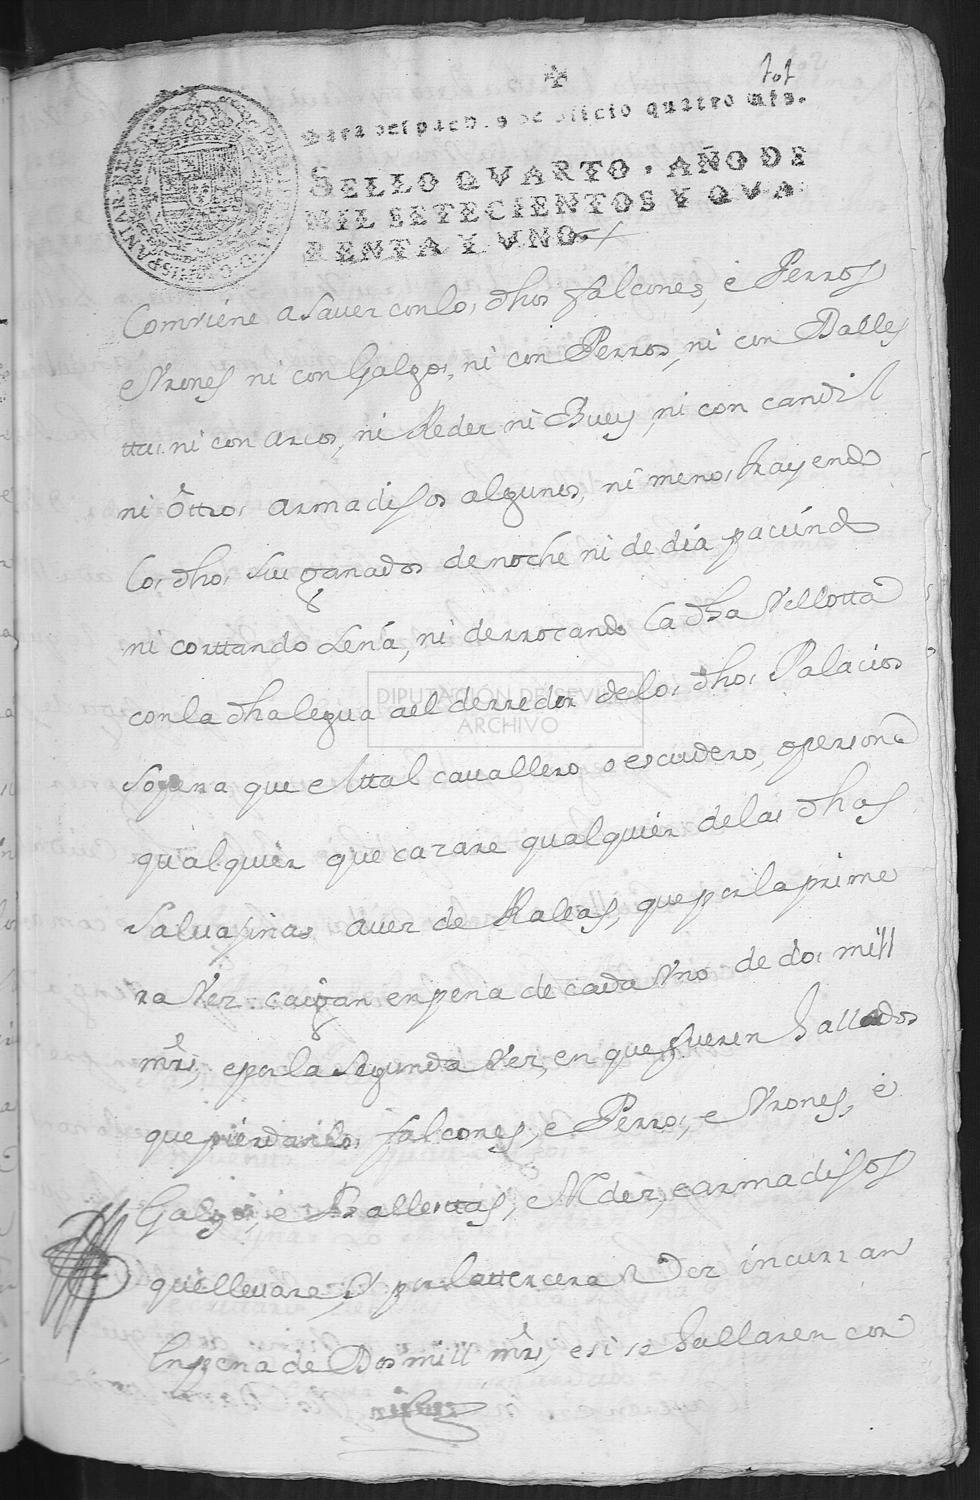 101
Para despachos de oficio quatro mrs.
SELLO QVARTO, AÑO DE
MIL SETECIENTOS Y QVA-
RENTA Y VNO.
Comviene a saver con los dhos falcones, e Perros
e Vrones ni con Galgos, ni con Perros, ni con Balles
ttas ni con arcos, ni Redes ni Buey, ni con candil
ni ôttros armadisos algunos, ni menos trayendo
los dhos sus ganados de noche ni de dia paciendo
ni corttando Leña, ni derrocando la dha Vellotta
con la dha legua a el derredor de los dhos Palacios
Sopena que el ttal cavallero o escudero, o persona
qualquier que cazare qualquier de las dhas
Salvaginas aver de Raleas, que por la prime
ra Vez caigan en pena de cada Vno de dos mill
mrs, e por la Segunda Vez, en que fueren hallados
que pierdan los falcones, e Perros, e Vrones, e
Galgos, e Ballesttas, e Redes, e armadisos
que llevare, y por la ttercera Vez incurran
en pena de Dos mill mrs, e si se hallaren con
DIPUTACIÓN DE SEVILLA
ARCHIVO